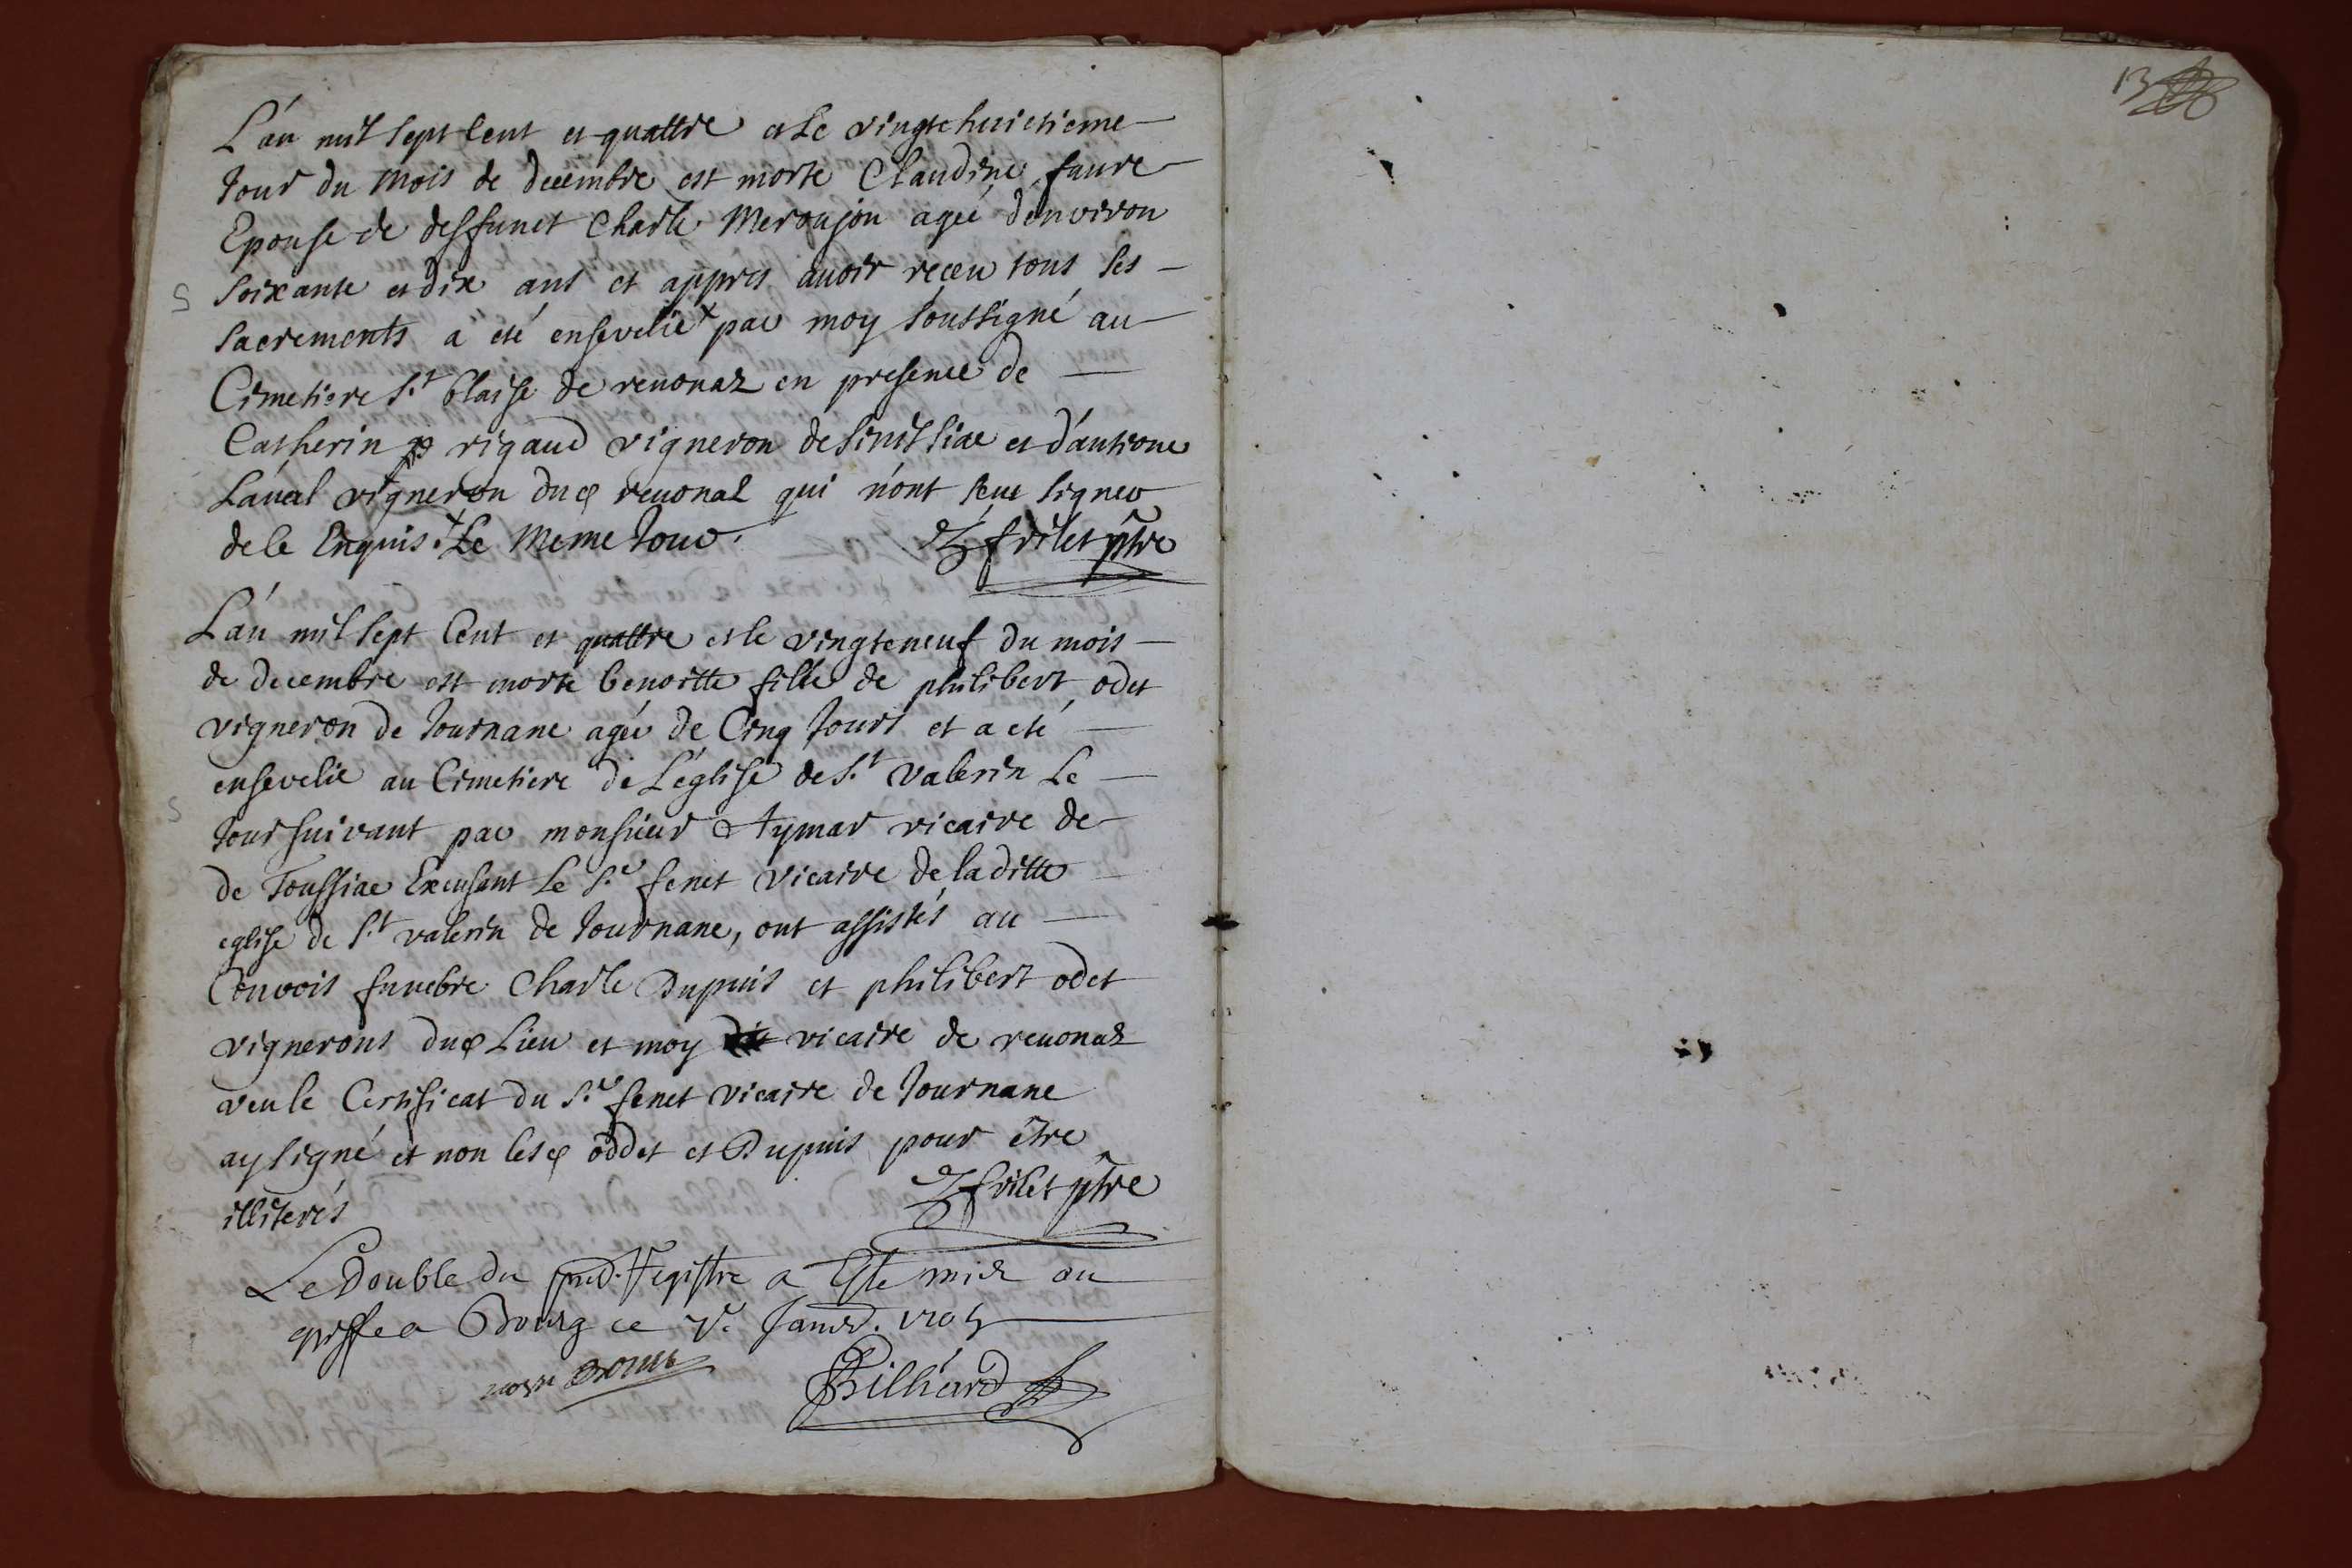 L'an mil sept Cent et quattre et Le vingtehuictieme
Jour du Mois de decembre est morte Claudine faure
Epouse de deffunct Charle Meroujon agée d'environ
soixante et dix ans et appres avoir receu tous ses
sacrements a eté ensevelie + par moy soussigné au
Cimetiere S.t blaise de reuonaz en presence de
Catherin rigaud vigneron de et d'antione
Laual vigneron dud reuonal qui n'ont sceu signer
de le Enquis. + Le Meme Jour. frilet ptre
L'an mil sept Cent et quattre et le vingteneuf du mois
de decembre est morte benoitte fille de philibert odet
vigneron de Journane agée de Cinq Jours et a eté
ensevelie au Cimetiere de L'eglise de S.t valerin Le
Jour suivant par monsieur Aymar vicaire de
de Toussiae Excusant Le S.r fenet vicaire de laditte
eglise de S.t valerin de Journane, ont assistés au
Convois funebre Charle Dupuis et philibert odet
vignerons dud Lieu et moy vicaire de reuonaz
veu le Certificat du S.r fenet vicaire de Journane
ay signé et non lesd oddet et Dupuis pour être
illiterés frilet ptre
Le Double du pnt. Registre a Este mis au
greffe a Bourg ce Janvr. 1705
Billiard
13